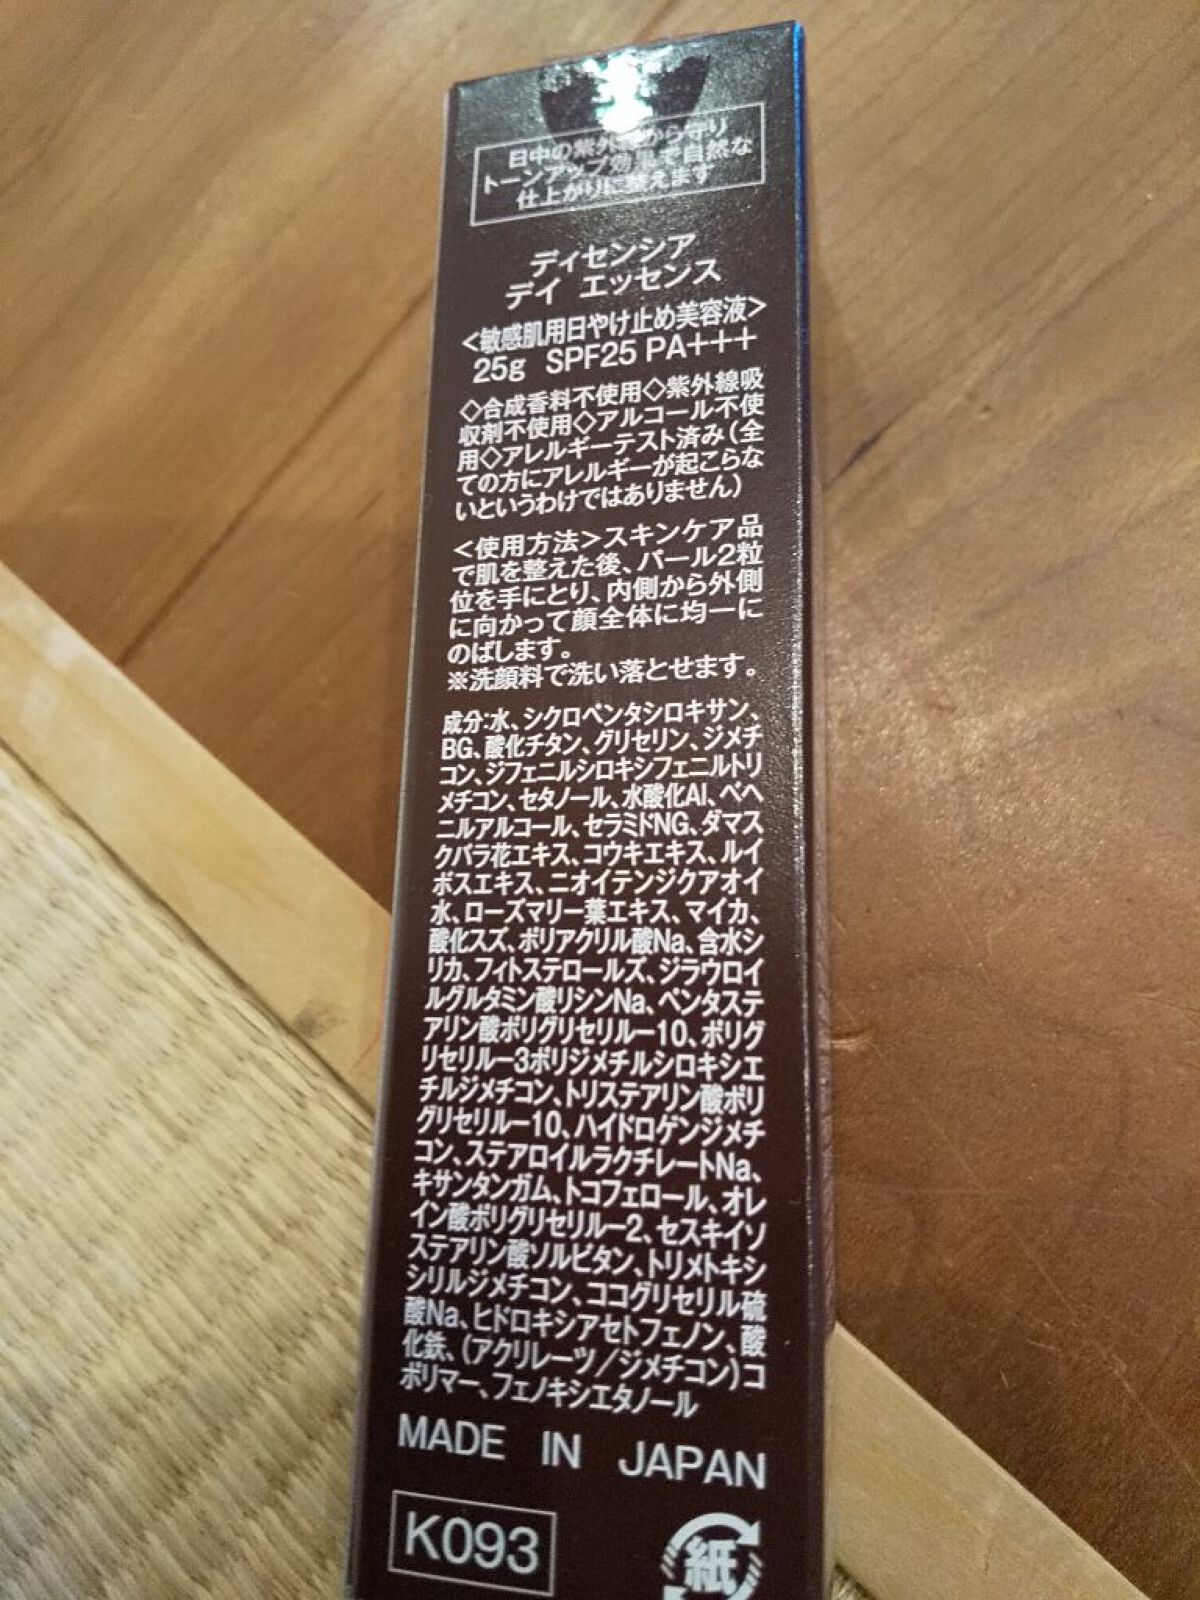 日中の紫外線から守り
トーンアップ効果で自然な
仕上がりに整えます
ディセンシア
デイ エッセンス
<敏感肌用日やけ止め美容液>
25g SPF25 PA+++
◇合成香料不使用◇紫外線吸
収剤不使用◇アルコール不使
用◇アレルギーテスト済み(全
ての方にアレルギーが起こらな
いというわけではありません)
<使用方法>スキンケア品
で肌を整えた後、パール2粒
位を手にとり、内側から外側
に向かって顔全体に均一に
のばします。
※洗顔料で洗い落とせます。
成分:水、シクロペンタシロキサン、
BG、酸化チタン、グリセリン、ジメチ
コン、ジフェニルシロキシフェニルトリ
メチコン、セタノール、水酸化Al、ベヘ
ニルアルコール、セラミドNG、ダマス
クバラ花エキス、コウキエキス、ルイ
ボスエキス、ニオイテンジクアオイ
水、ローズマリー葉エキス、マイカ、
酸化スズ、ポリアクリル酸Na、含水シ
リカ、フィトステロールズ、ジラウロイ
ルグルタミン酸リシンNa、ペンタステ
アリン酸ポリグリセリル-10、ポリグ
リセリル-3ポリジメチルシロキシエ
チルジメチコン、トリステアリン酸ポリ
グリセリル-10、ハイドロゲンジメチ
コン、ステアロイルラクチレートNa、
キサンタンガム、トコフェロール、オレ
イン酸ポリグリセリル-2、セスキイソ
ステアリン酸ソルビタン、トリメトキシ
シリルジメチコン、ココグリセリル硫
酸Na、ヒドロキシアセトフェノン、酸
化鉄、(アクリレーツ/ジメチコン)コ
ポリマー、フェノキシエタノール
MADE IN JAPAN
K093
紙